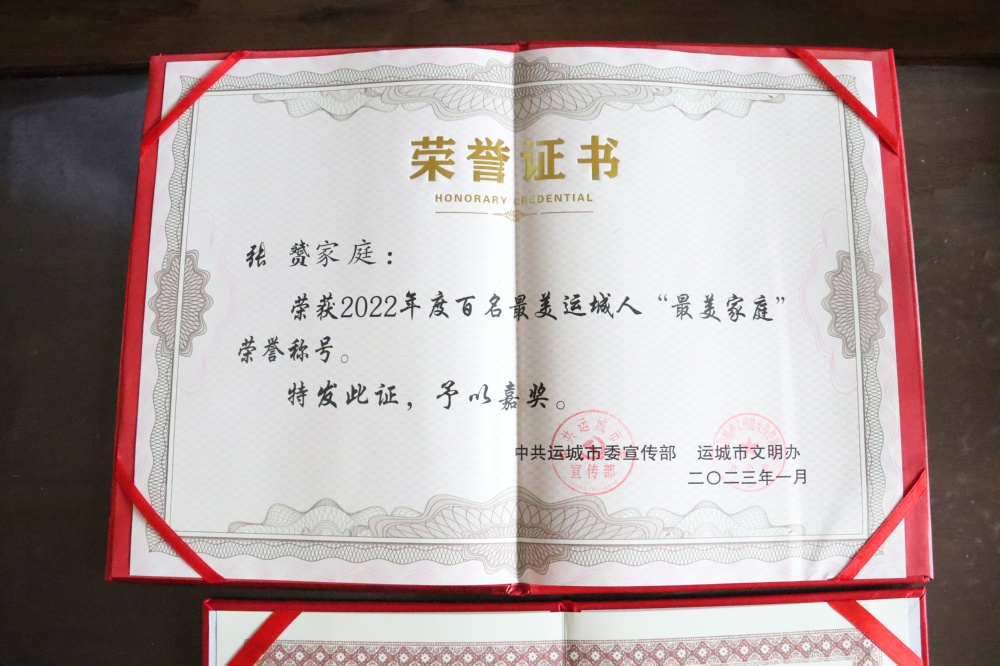 荣誉证书
HONORARY CREDENTIAL
张 赟家庭：
荣获2022年度百名最美运城人“最美家庭”
荣誉称号。
特发此证，予以嘉奖。
中共运城市委宣传部 运城市文明办
二〇二三年一月
宣传部